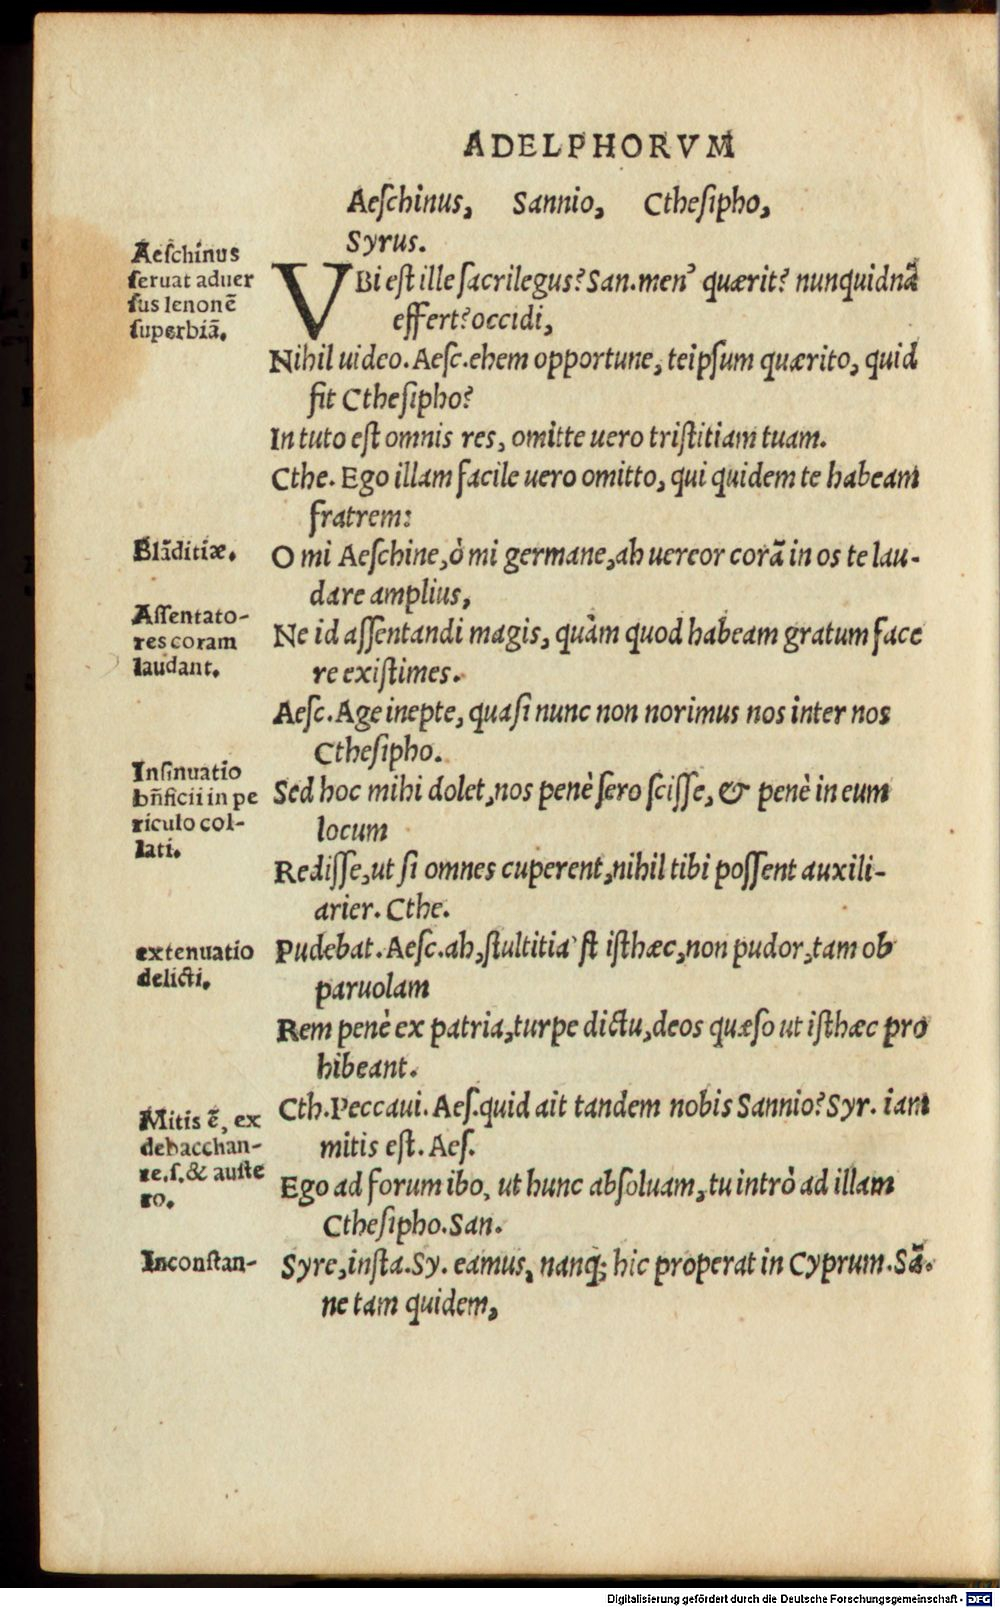 ADELPHORVM
Aeſchinus, Sannio, Ctheſipho,
Syrus.
Aeſchinus
ſeruat aduer
ſus lenonē
ſuperbiā.
VBi eſt ille ſacrilegus? San. men' quærit? nunquidnā
effert? occidi,
Nihil uideo. Aeſc. ehem opportune, teipſum quærito, quid
fit Ctheſipho?
In tuto eſt omnis res, omitte uero triſtitiam tuam.
Cthe. Ego illam facile uero omitto, qui quidem te habeam
fratrem:
Blāditiæ.
O mi Aeſchine, ò mi germane, ah uereor corā in os te lau-
dare amplius,
Aſſentato-
res coram
laudant.
Ne id aſſentandi magis, quàm quod habeam gratum face
re exiſtimes.
Aeſc. Age inepte, quaſi nunc non norimus nos inter nos
Ctheſipho.
Inſinuatio
bñficii in pe
riculo col-
lati.
Sed hoc mihi dolet, nos penè ſero ſciſſe, & penè in eum
locum
Rediſſe, ut ſi omnes cuperent, nihil tibi poſſent auxili-
arier. Cthe.
extenuatio
delicti.
Pudebat. Aeſc. ah, ſtultitia' ſt iſthæc, non pudor, tam ob
paruolam
Rem penè ex patria, turpe dictu, deos quæſo ut iſthæc pro
hibeant.
Mitis ē, ex
debacchan-
te. ſ. & auſte
ro.
Cth. Peccaui. Aeſ. quid ait tandem nobis Sannio? Syr. iam
mitis eſt. Aeſ.
Ego ad forum ibo, ut hunc abſoluam, tu intrò ad illam
Ctheſipho. San.
Inconſtan-
Syre, inſta. Sy. eamus, nanq; hic properat in Cyprum. Sā.
ne tam quidem,
Digitalisierung gefördert durch die Deutsche Forschungsgemeinschaft - DFG